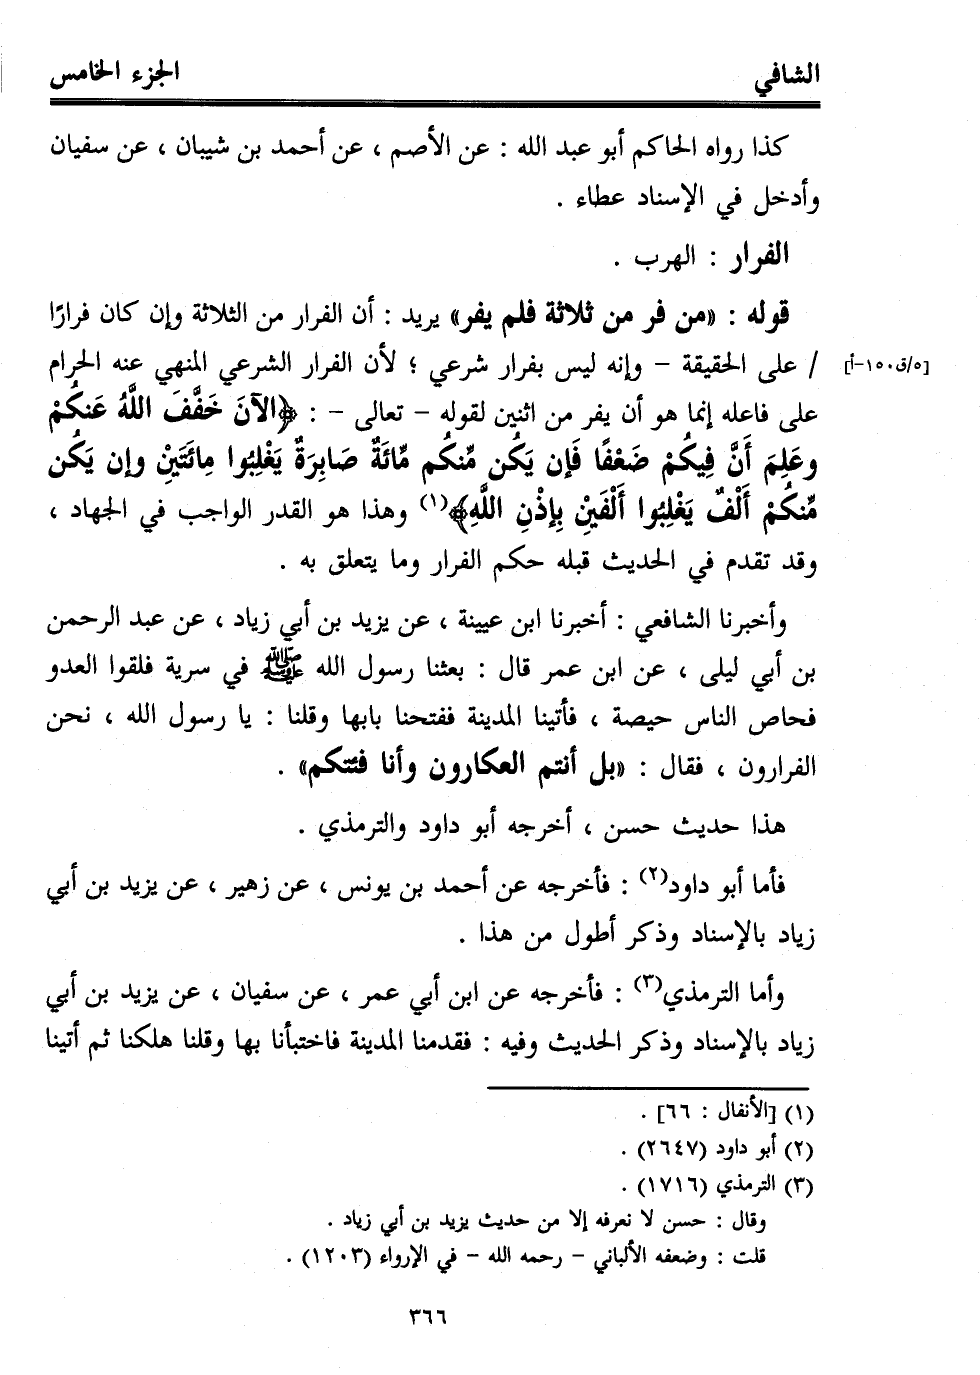 الشافي
الجزء الخامس
كذا رواه الحاكم أبو عبد الله : عن الأصم ، عن أحمد بن شيبان ، عن سفيان
وأدخل في الإسناد عطاء .
الفرار : الهرب .
قوله : «من فر من ثلاثة فلم يفر» يريد : أن الفرار من الثلاثة وإن كان فرارًا
/ على الحقيقة – وإنه ليس بفرار شرعي ؛ لأن الفرار الشرعي المنهي عنه الحرام
[٥/ق١٥٠-أ]
على فاعله إنما هو أن يفر من اثنين لقوله – تعالى – : ﴿الآنَ خَفَّفَ اللَّهُ عَنكُمْ
وعَلِمَ أَنَّ فِيكُمْ ضَعْفًا فَإِن يَكُن مِّنكُم مِّائَةٌ صَابِرَةٌ يَغْلِبُوا مِائَتَيْنِ وإن يَكُن
مِّنكُمْ أَلْفٌ يَغْلِبُوا أَلْفَيْنِ بِإِذْنِ اللَّهِ﴾(١) وهذا هو القدر الواجب في الجهاد ،
وقد تقدم في الحديث قبله حكم الفرار وما يتعلق به .
وأخبرنا الشافعي : أخبرنا ابن عيينة ، عن يزيد بن أبي زياد ، عن عبد الرحمن
بن أبي ليلى ، عن ابن عمر قال : بعثنا رسول الله ﷺ في سرية فلقوا العدو
فحاص الناس حيصة ، فأتينا المدينة ففتحنا بابها وقلنا : يا رسول الله ، نحن
الفرارون ، فقال : «بل أنتم العكارون وأنا فئتكم» .
هذا حديث حسن ، أخرجه أبو داود والترمذي .
فأما أبو داود(٢) : فأخرجه عن أحمد بن يونس ، عن زهير ، عن يزيد بن أبي
زياد بالإسناد وذكر أطول من هذا .
وأما الترمذي(٣) : فأخرجه عن ابن أبي عمر ، عن سفيان ، عن يزيد بن أبي
زياد بالإسناد وذكر الحديث وفيه : فقدمنا المدينة فاختبأنا بها وقلنا هلكنا ثم أتينا
(١) [الأنفال : ٦٦] .
(٢) أبو داود (٢٦٤٧) .
(٣) الترمذي (١٧١٦) .
وقال : حسن لا نعرفه إلا من حديث يزيد بن أبي زياد .
قلت : وضعفه الألباني – رحمه الله – في الإرواء (١٢٠٣) .
٣٦٦